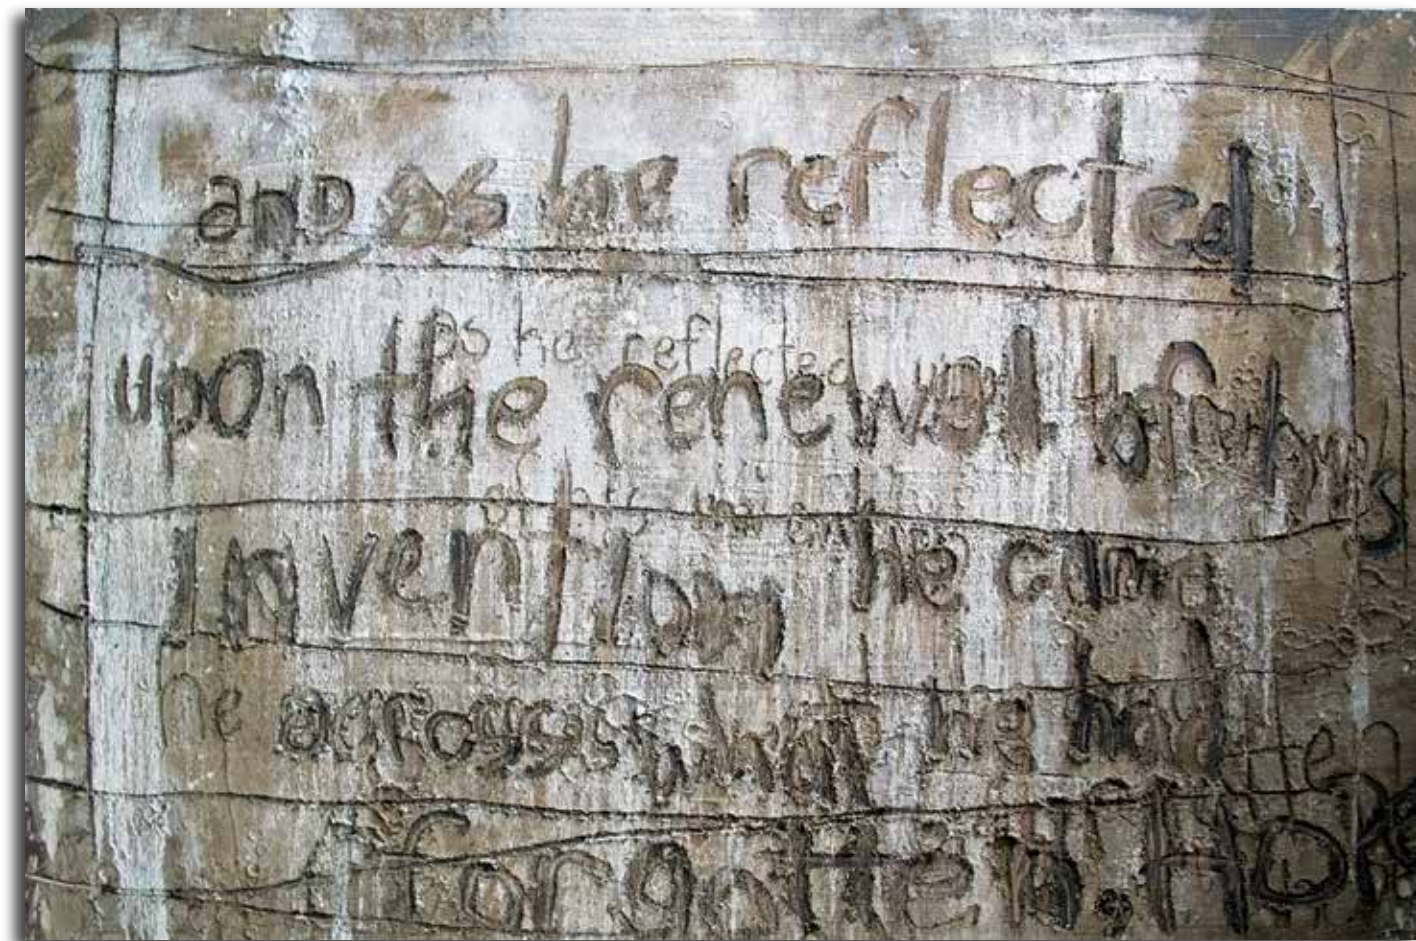 and as he reflected
as he reflected
upon the renewal of
Invention he came
he across what he had
forgotten. Hope